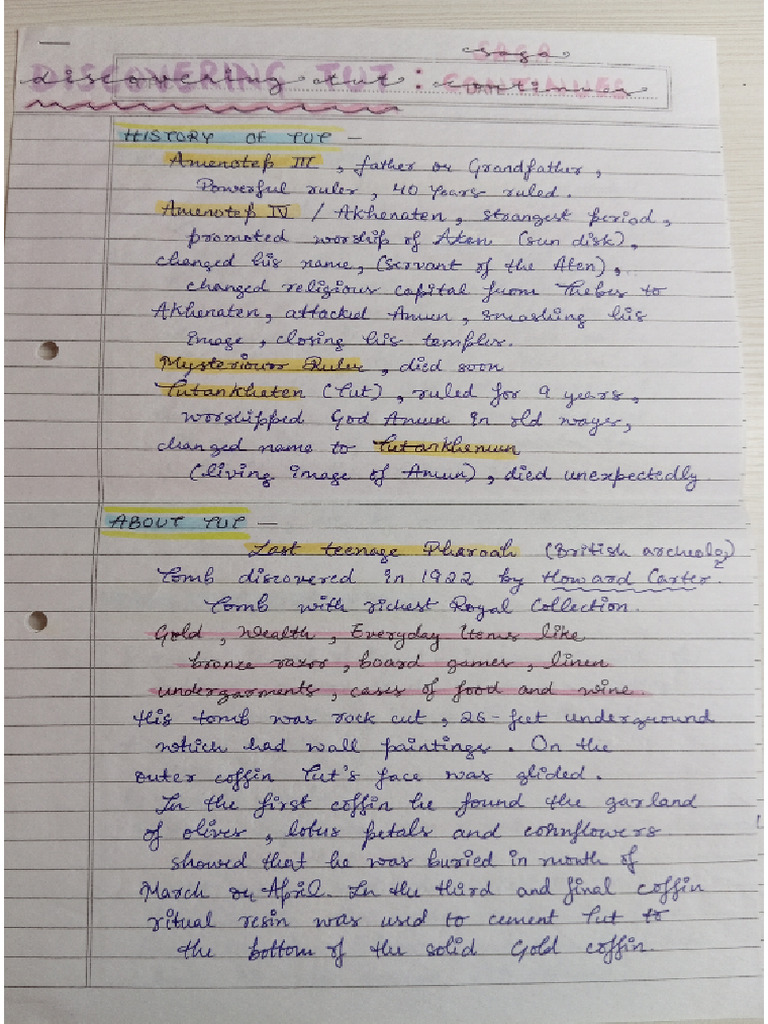 DISCOVERING TUT : SAGA CONTINUES
HISTORY OF TUT –
Amenotep III, father or Grandfather,
Powerful ruler, 40 years ruled.
Amenotep IV / Akhenaten, strangest period,
promoted worship of Aten (sun disk),
changed his name, (Servant of the Aten),
changed religious capital from Thebes to
Akhenaten, attacked Amun, smashing his
image, closing his temples.
Mysterious Ruler, died soon
Tutankhaten (Tut), ruled for 9 years,
worshipped God Amun in old wages,
changed name to Tutankhamun
(living image of Amun), died unexpectedly.
ABOUT TUT –
Last teenage Pharoah (British archeolog)
Tomb discovered in 1922 by Howard Carter.
Tomb with richest Royal Collection.
Gold, Wealth, Everyday Items like
bronze razor, board games, linen
undergarments, cases of food and wine.
His tomb was rock cut, 26-feet underground
which had wall paintings. On the
outer coffin Tut's face was glided.
In the first coffin he found the garland
of olives, lotus petals and cornflowers
showed that he was buried in month of
March or April. In the third and final coffin
ritual resin was used to cement Tut to
the bottom of the solid Gold coffin.